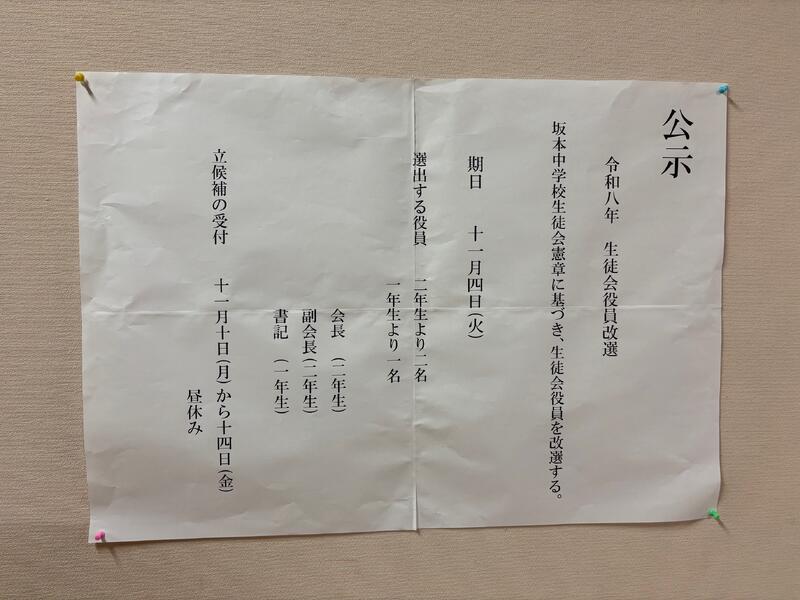 公示
令和八年　生徒会役員改選
坂本中学校生徒会憲章に基づき、生徒会役員を改選する。
期日　十一月四日(火)
選出する役員　二年生より二名
一年生より一名
会長　(二年生)
副会長(二年生)
書記　(一年生)
立候補の受付　十一月十日(月)から十四日(金)
昼休み